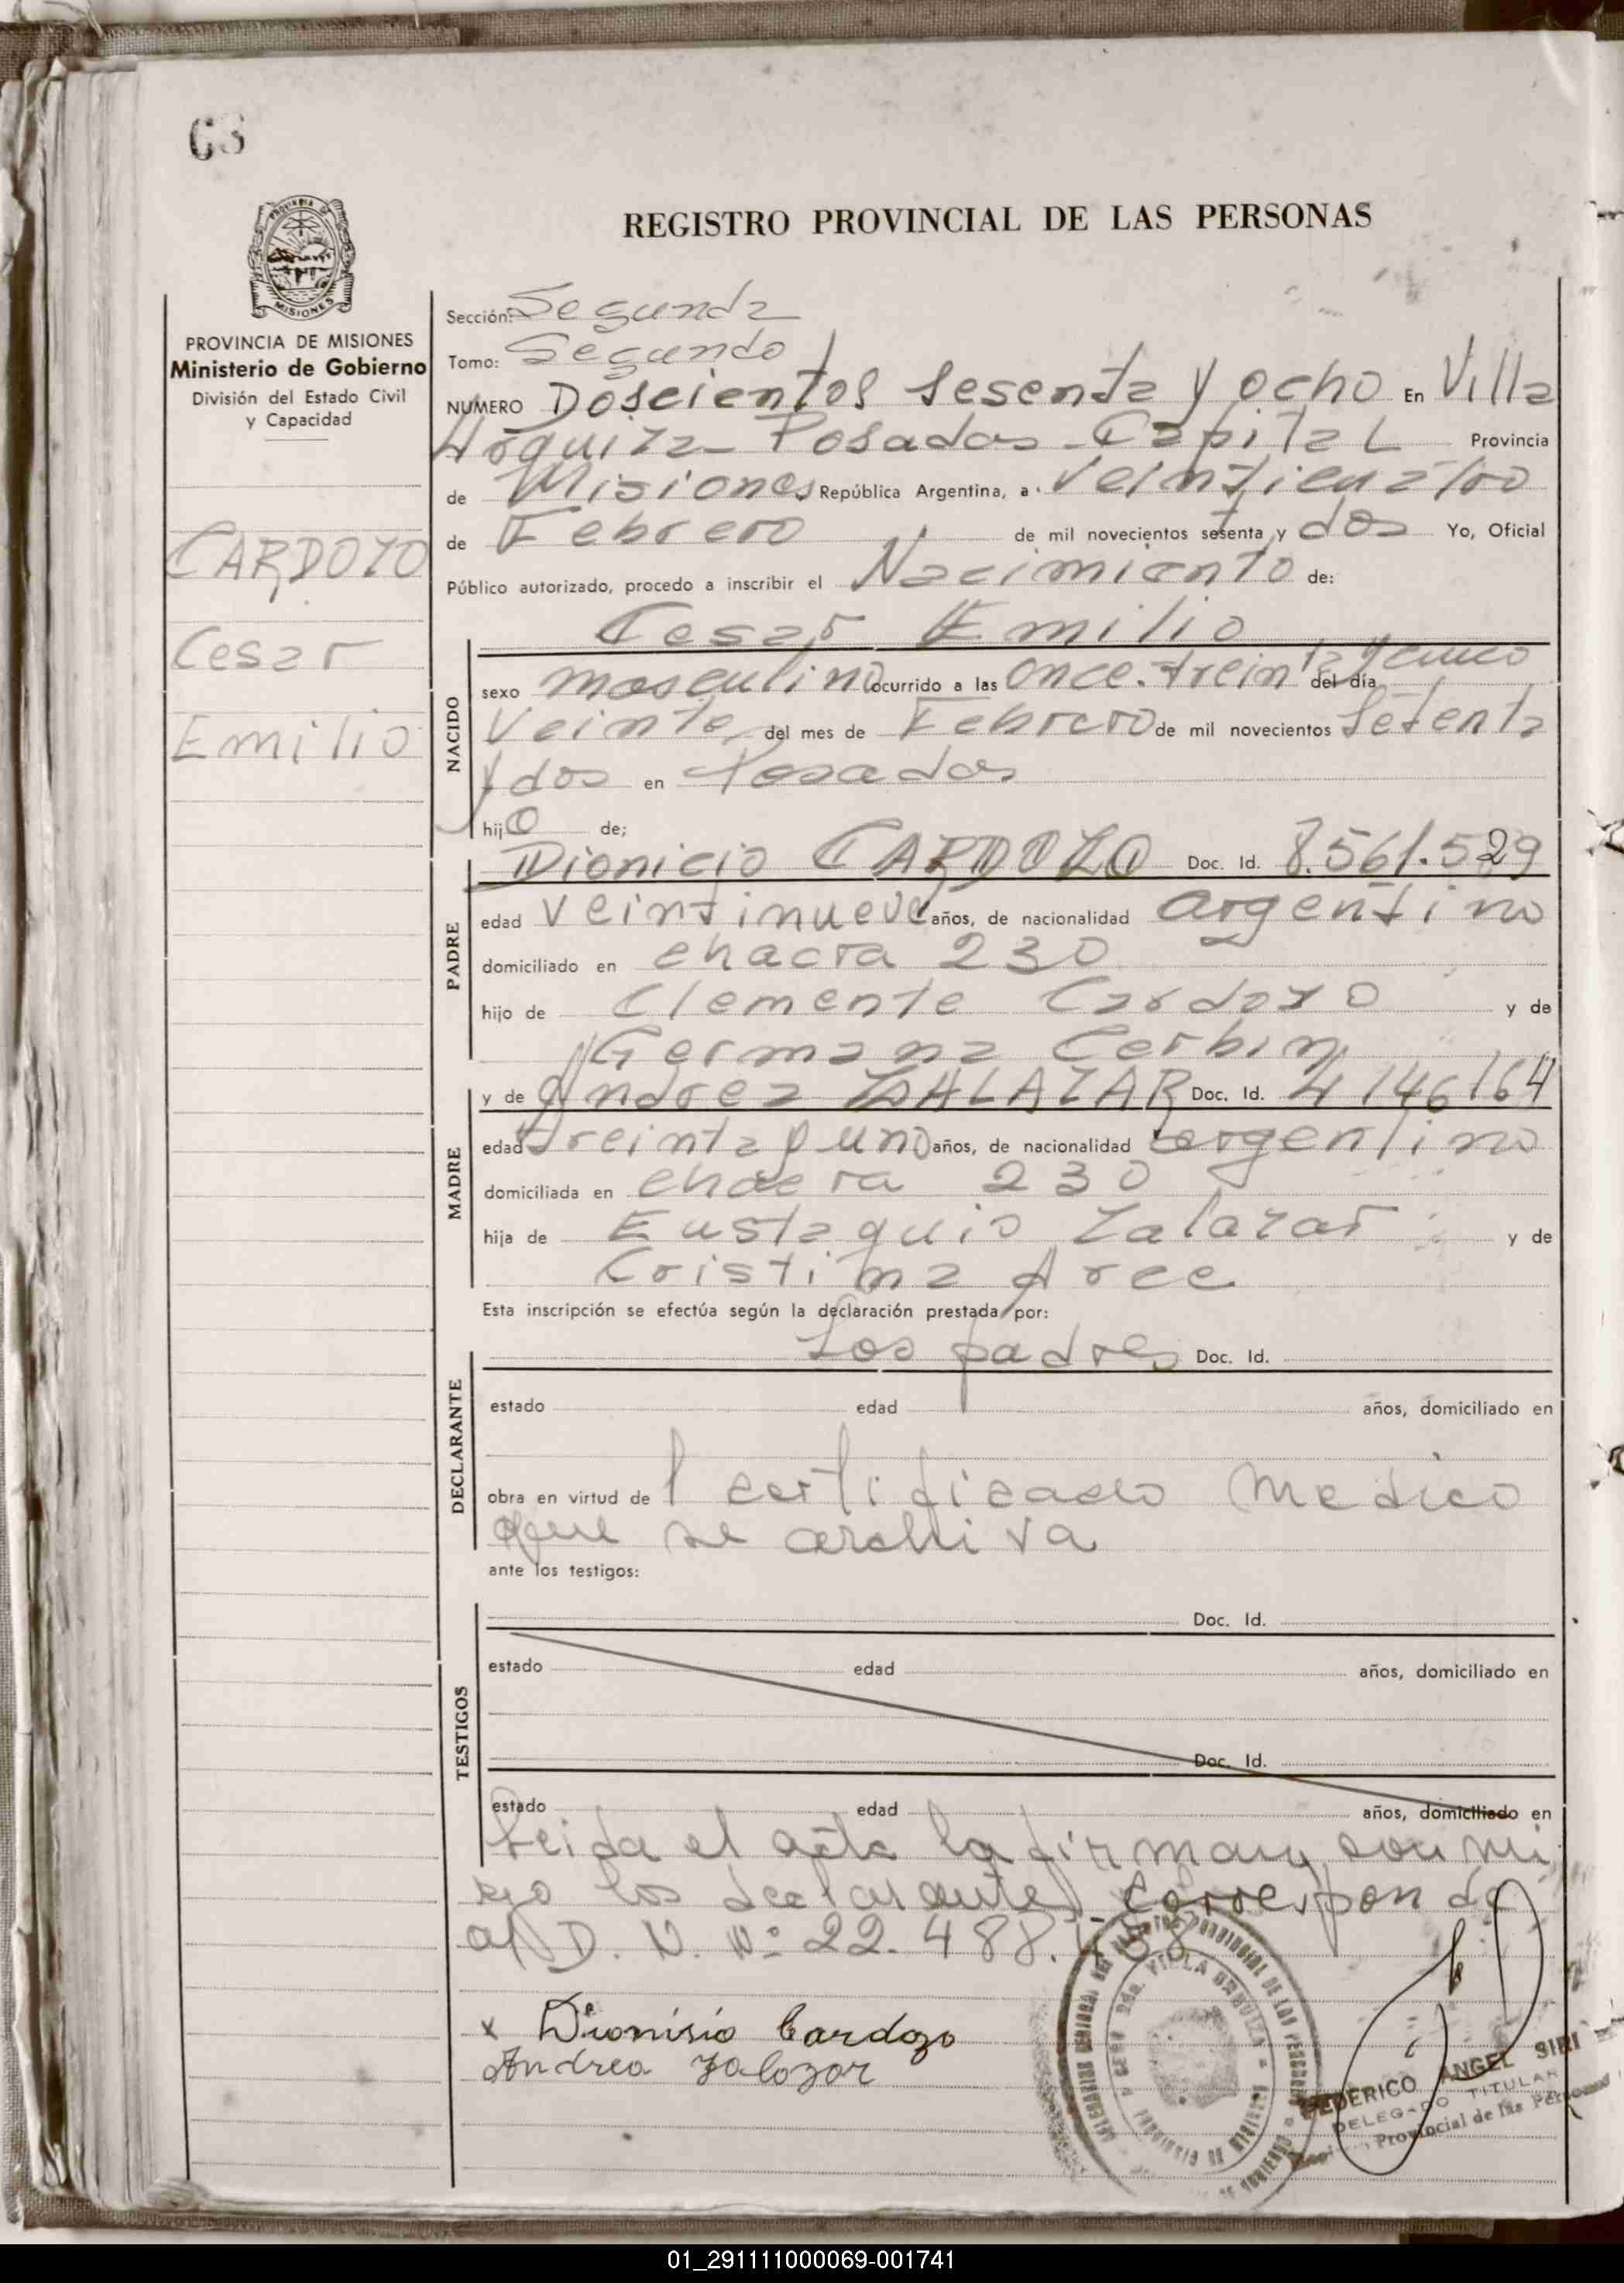 63
REGISTRO PROVINCIAL DE LAS PERSONAS
MISIONES
PROVINCIA DE MISIONES
Ministerio de Gobierno
División del Estado Civil
y Capacidad
CARDOZO
Cesar
Emilio
Sección: Segunda
Tomo: Segundo
NUMERO Doscientos sesenta y ocho En Villa
Urquiza - Posadas - Capital Provincia
de Misiones República Argentina, a Veinticuatro
de Febrero de mil novecientos setenta y dos Yo, Oficial
Público autorizado, procedo a inscribir el Nacimiento de:
Cesar Emilio
NACIDO
sexo masculino ocurrido a las once. treinta y cinco del día
Veinte del mes de Febrero de mil novecientos Setenta
y dos en Posadas
hijo de;
PADRE
Dionicio CARDOZO Doc. Id. 8.561.529
edad veintinueve años, de nacionalidad argentino
domiciliado en chacra 230
hijo de Clemente Cardozo y de
Germana Cerbin
MADRE
y de Andrea ZALAZAR Doc. Id. 4146164
edad treinta y uno años, de nacionalidad argentino
domiciliada en chacra 230
hija de Eustaquio Zalazar y de
Cristina Arce
Esta inscripción se efectúa según la declaración prestada por:
DECLARANTE
Los padres Doc. Id.
estado edad años, domiciliado en
obra en virtud de 1 certificado medico
que se archiva
ante los testigos:
TESTIGOS
Doc. Id.
estado edad años, domiciliado en
Doc. Id.
estado edad años, domiciliado en
Leida el acta la firman con mi
go los declarantes. Corresponde
al D. N. Nº 22.488.458
x Dionisio Cardozo
Andrea Zalazar
2da. VILLA URQUIZA
FEDERICO ANGEL SIRI
DELEGADO TITULAR
Provincial de las Personas
01_291111000069-001741